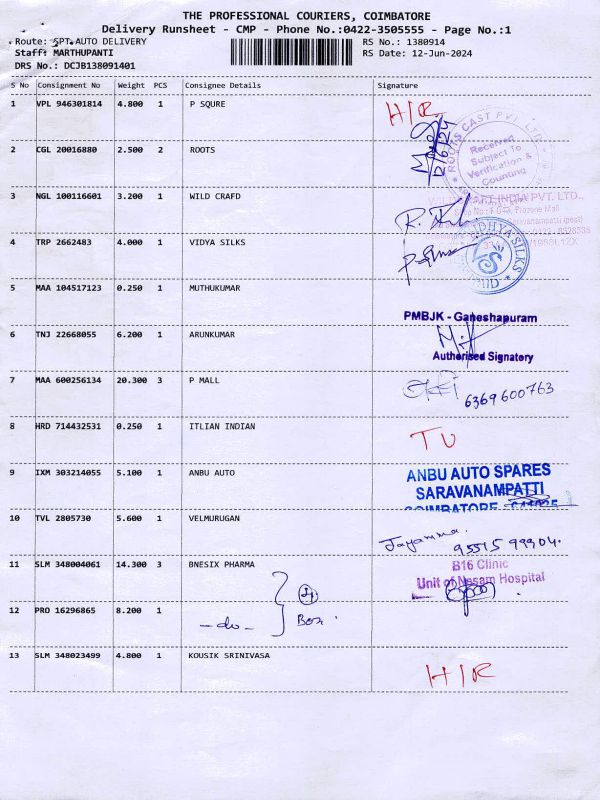 THE PROFESSIONAL COURIERS, COIMBATORE
Delivery Runsheet - CMP - Phone No.:0422-3505555 - Page No.:1
Route: SPT AUTO DELIVERY
RS No.: 1380914
Staff: MARTHUPANTI
RS Date: 12-Jun-2024
DRS No.: DCJB138091401
S No Consignment No Weight PCS Consignee Details Signature
1 VPL 946301814 4.800 1 P SQURE H/R
2 CGL 20016880 2.500 2 ROOTS 12/6/24
ROOTS CAST PVT. LTD.
Received
Subject To
Verification &
Counting
3 NGL 100116601 3.200 1 WILD CRAFD
INDIA PVT. LTD.,
4 TRP 2662483 4.000 1 VIDYA SILKS
SILKS
5 MAA 104517123 0.250 1 MUTHUKUMAR
PMBJK - Ganeshapuram
6 TNJ 22668055 6.200 1 ARUNKUMAR
Authorised Signatory
7 MAA 600256134 20.300 3 P MALL 6369600763
8 HRD 714432531 0.250 1 ITLIAN INDIAN
9 IXM 303214055 5.100 1 ANBU AUTO
ANBU AUTO SPARES
SARAVANAMPATTI
COIMBATORE
10 TVL 2805730 5.600 1 VELMURUGAN
Jayamma
11 SLM 348004061 14.300 3 BNESIX PHARMA
B16 Clinic
Unit of Nasam Hospital
12 PRO 16296865 8.200 1 -do- Box
13 SLM 348023499 4.800 1 KOUSIK SRINIVASA H/R